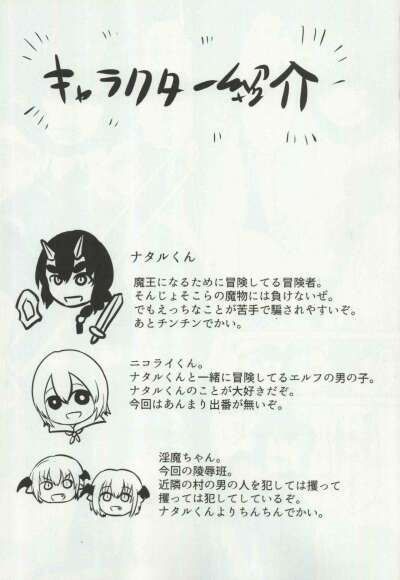 キャラクター紹介
ナタルくん
魔王になるために冒険してる冒険者。
そんじょそこらの魔物には負けないぜ。
でもえっちなことが苦手で騙されやすいぞ。
あとチンチンでかい。
ニコライくん。
ナタルくんと一緒に冒険してるエルフの男の子。
ナタルくんのことが大好きだぞ。
今回はあんまり出番が無いぞ。
淫魔ちゃん。
今回の陵辱班。
近隣の村の男の人を犯しては攫って
攫っては犯してしているぞ。
ナタルくんよりちんちんでかい。